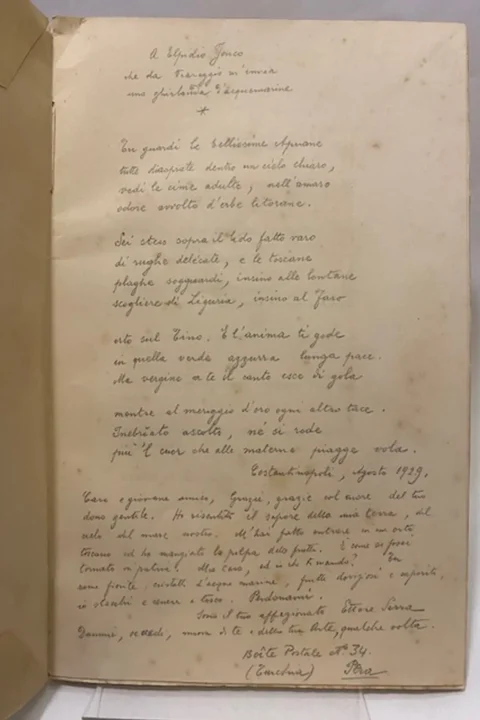 A Elpidio Jenco
che da Viareggio m'invia
una ghirlanda d'acquemarine
*
Tu guardi le bellissime Apuane
tutte diasprate dentro un cielo chiaro,
vedi le cime adulte, nell'amaro
odore avvolto d'erbe litorane.
Sei steso sopra il lido fatto raro
di rughe delicate, e le toscane
plaghe sogguardi, insino alle lontane
scogliere di Liguria, insino al Faro
erto sul Tino. E l'anima ti gode
in quella verde azzurra lunga pace.
Ma vergine a te il canto esce di gola
mentre al meriggio d'oro ogni altro tace.
Inebriato ascolto, né si rode
più 'l cuor che alle materne piagge vola.
Costantinopoli, Agosto 1929.
Caro e giovane amico, Grazie, grazie col cuore del tuo
dono gentile. Ho risentito il sapore della mia terra, del
cielo del mare nostro. M'hai fatto entrare in un orto
toscano ed ho mangiato la polpa delle frutta. E come se fossi
tornato in patria. Ma caro, ed io che ti mando? Tu
come fionite, cristalli d'acqua marina, frutta dorigioni e saporite,
io sterchi e cenere e tosco. Perdonami.
Sono il tuo affezionato Ettore Serra
Dammi, se credi, nuova di te e della tua Arte, qualche volta.
Boîte Postale N° 34.
(Turchia) Pera